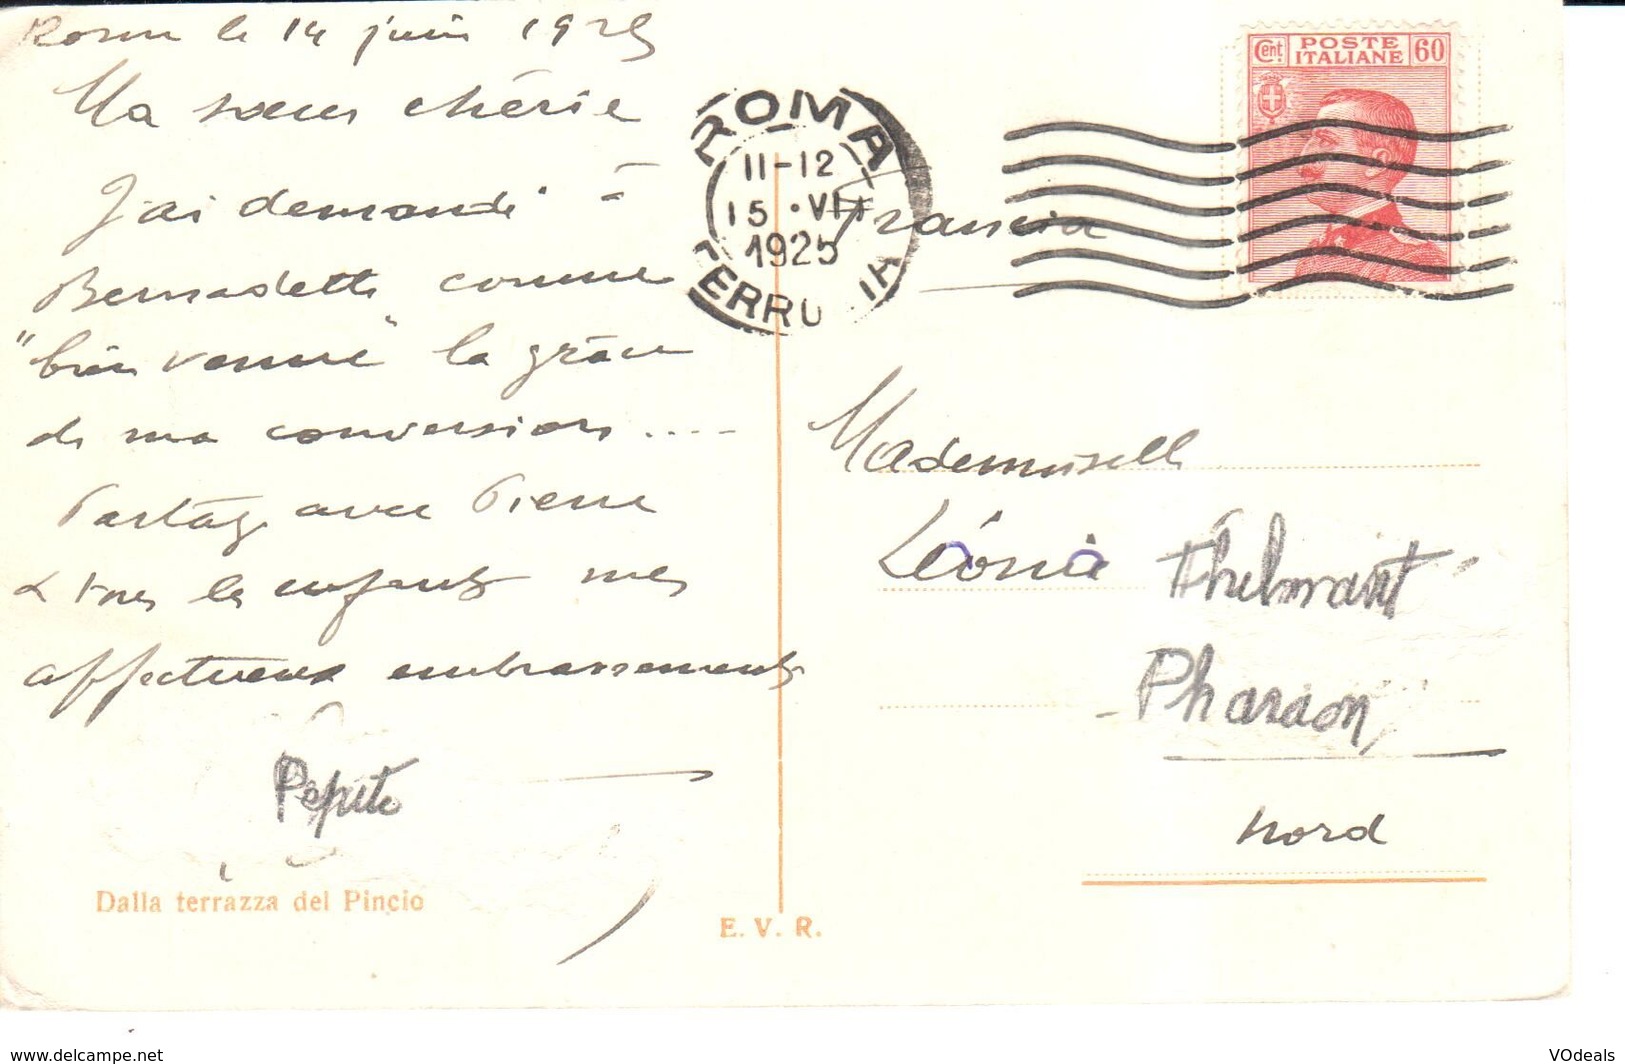 Rome le 14 juin 1925
Ma soeur chérie
J'ai demandé à
Bernadette comme
"bienvenue" la grâce
de ma conversion....
Partage avec Pierre
& tous les enfants mes
affectueux embrassements
Pepite
Dalla terrazza del Pincio
E. V. R.
ROMA
11-12
15 · VII
1925
FERROVIA
Cent POSTE ITALIANE 60
Francia
Mademoiselle
Léonia Thelmant
Pharaon
Nord
www.delcampe.net
VOdeals